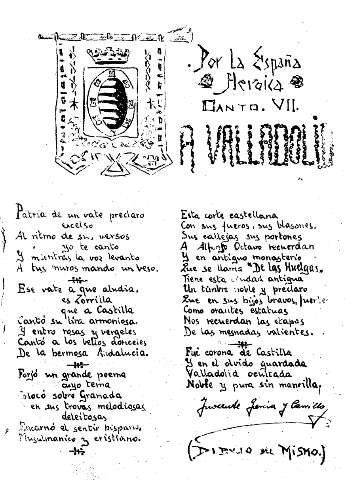 Por la España
Heroica
Canto. VII.
A VALLADOLID
Patria de un vate preclaro
excelso
Al ritmo de sus versos
yo te canto
Y mientras la voz levanto
A tus muros mando un beso.
Ese vate a que aludía,
es Zorrilla
que a Castilla
Cantó su lira armoniosa.
Y entre rosas y vergeles
Cantó a los bellos donceles
De la hermosa Andalucía.
Forjó un grande poema
cuyo tema
Colocó sobre Granada
en sus trovas melodiosas
deleitosas
Encarnó el sentir hispano,
Musulmanico y cristiano.
Esta corte castellana
Con sus fueros, sus blasones,
Sus callejas sus portones
A Alfonso Octavo recuerdan
Y en antiguo monasterio
Que se llama "De las Huelgas,
Tiene esta ciudad antigua
Un timbre noble y preclaro
Que en sus hijos bravos, fuertes
Como orantes estatuas
Nos recuerdan las etapas
De las mesnadas valientes.
Fué corona de Castilla
Y en el olvido guardada
Valladolid ocultada
Noble y pura sin mancilla,
(DIBUJO DEL MISMO.)